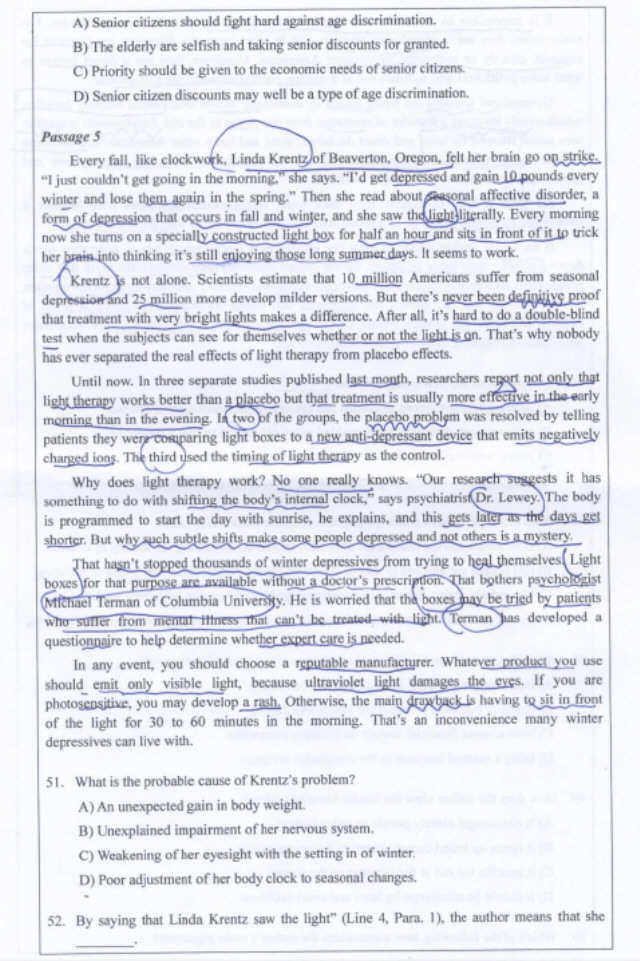 A) Senior citizens should fight hard against age discrimination.
B) The elderly are selfish and taking senior discounts for granted.
C) Priority should be given to the economic needs of senior citizens.
D) Senior citizen discounts may well be a type of age discrimination.
Passage 5
Every fall, like clockwork, Linda Krentz of Beaverton, Oregon, felt her brain go on strike.
“I just couldn’t get going in the morning,” she says. “I’d get depressed and gain 10 pounds every
winter and lose them again in the spring.” Then she read about seasonal affective disorder, a
form of depression that occurs in fall and winter, and she saw the light-literally. Every morning
now she turns on a specially constructed light box for half an hour and sits in front of it to trick
her brain into thinking it’s still enjoying those long summer days. It seems to work.
Krentz is not alone. Scientists estimate that 10 million Americans suffer from seasonal
depression and 25 million more develop milder versions. But there’s never been definitive proof
that treatment with very bright lights makes a difference. After all, it’s hard to do a double-blind
test when the subjects can see for themselves whether or not the light is on. That’s why nobody
has ever separated the real effects of light therapy from placebo effects.
Until now. In three separate studies published last month, researchers report not only that
light therapy works better than a placebo but that treatment is usually more effective in the early
morning than in the evening. In two of the groups, the placebo problem was resolved by telling
patients they were comparing light boxes to a new anti-depressant device that emits negatively
charged ions. The third used the timing of light therapy as the control.
Why does light therapy work? No one really knows. “Our research suggests it has
something to do with shifting the body’s internal clock,” says psychiatrist Dr. Lewey. The body
is programmed to start the day with sunrise, he explains, and this gets later as the days get
shorter. But why such subtle shifts make some people depressed and not others is a mystery.
That hasn’t stopped thousands of winter depressives from trying to heal themselves. Light
boxes for that purpose are available without a doctor’s prescription. That bothers psychologist
Michael Terman of Columbia University. He is worried that the boxes may be tried by patients
who suffer from mental illness that can’t be treated with light. Terman has developed a
questionnaire to help determine whether expert care is needed.
In any event, you should choose a reputable manufacturer. Whatever product you use
should emit only visible light, because ultraviolet light damages the eyes. If you are
photosensitive, you may develop a rash. Otherwise, the main drawback is having to sit in front
of the light for 30 to 60 minutes in the morning. That’s an inconvenience many winter
depressives can live with.
51. What is the probable cause of Krentz’s problem?
A) An unexpected gain in body weight.
B) Unexplained impairment of her nervous system.
C) Weakening of her eyesight with the setting in of winter.
D) Poor adjustment of her body clock to seasonal changes.
52. By saying that Linda Krentz saw the light” (Line 4, Para. 1), the author means that she
________.